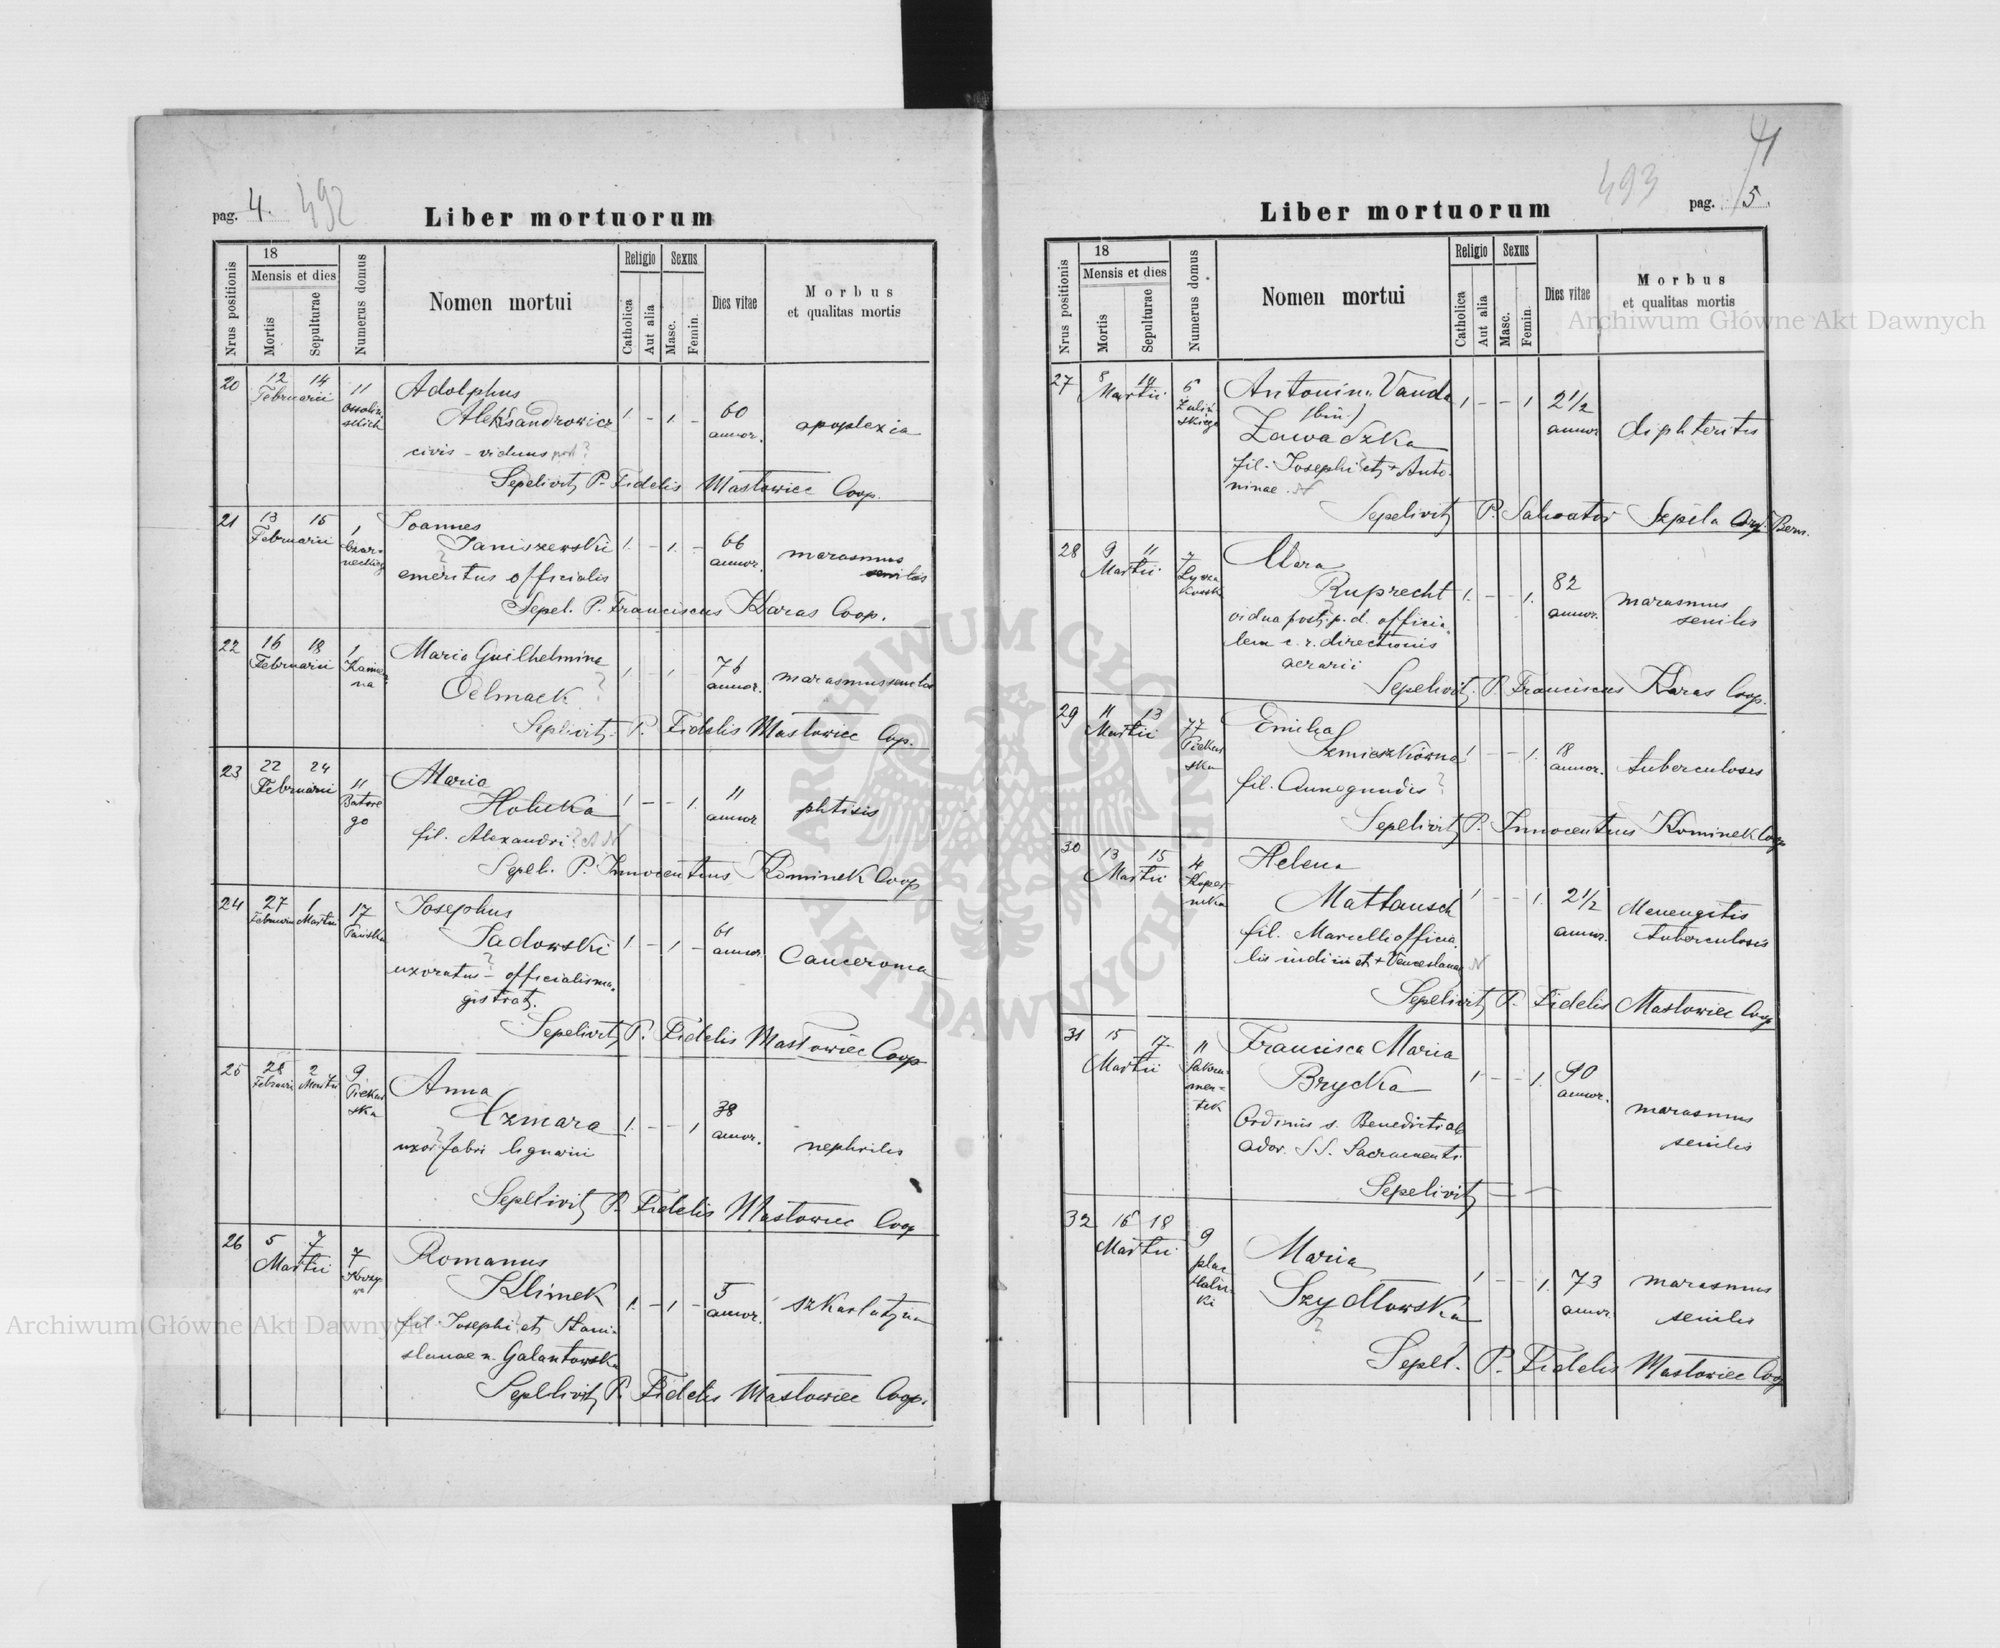 pag. 4. 492
Liber mortuorum
Nrus positionis
18
Mensis et dies
Mortis
Sepulturae
Numerus domus
Nomen mortui
Religio
Catholica
Aut alia
Sexus
Masc.
Femin.
Dies vitae
Morbus
et qualitas mortis
20 12 14 Februarii 11 Ossolińskich
Adolphus
Aleksandrowicz 1 - 1. - 60 annor. apoplexia
civis - viduus post ?
Sepelivit P. Fidelis Masłowiec Coop.
21 13 15 Februarii 1 Czarneckiego
Joannes
Janiszewski 1. - 1. - 66 annor. marasmus senilis
emeritus officialis
Sepel. P. Franciscus Karas Coop.
22 16 18 Februarii 1 Kamienna
Maria Guilhelmina
Oelmack ? 1 - 1 - 76 annor. marasmus senilis
Sepelivit. P. Fidelis Masłowiec Cop.
23 22 24 Februarii 11 Batorego
Maria
Holicka 1 - - 1. 11 annor phtisis
fil. Alexandri ? A N
Sepel. P. Innocentius Kominek Coop
24 27 Februarii 1 Martii 17 Pańska
Josephus
Sadowski 1. - 1 - 61 annor. Canceroma
uxoratus - officialis ma-
gistrat.
Sepelivit P. Fidelis Masłowiec Coop
25 28 Februarii 2 Martii 9 Piekarska
Anna
Czmara 1. - - 1 38 annor. nephritis
uxor fabri lignarii
Sepelivit P. Fidelis Masłowiec Coop
26 5 7 Martii 7 Krzywa
Romanus
Klimek 1. - 1 - 5 annor. szkarlatyna
fil. Josephi et Stani-
slauae n. Galantowska
Sepelivit P. Fidelis Masłowiec Coop.
41
493
pag. 5.
Liber mortuorum
Nrus positionis
18
Mensis et dies
Mortis
Sepulturae
Numerus domus
Nomen mortui
Religio
Catholica
Aut alia
Sexus
Masc.
Femin.
Dies vitae
Morbus
et qualitas mortis
27 8 10 Martii 6 Zulińskiego
Antonina Vanda
(bin.)
Zawadzka 1 - - 1 2 1/2 annor diphteritis
fil. Josephi et + Anto-
ninae. N
Sepelivit P. Salvator Szpila Ord. Bern.
28 9 11 Martii 7 Łyczakowska
Clara
Ruprecht 1. - - 1. 82 annor. marasmus senilis
vidua post p. d. officia-
lem c. r. directionis
aerarii
Sepelivit. P. Franciscus Karas Coop.
29 11 13 Martii 77 Piekarska
Emilia
Szmieszkówna 1 - - 1. 18 annor. tuberculosis
fil. Cunegundis ?
Sepelivit P. Innocentius Kominek Coop
30 13 15 Martii 4 Kopernika
Helena
Mattausch 1 - - 1. 2 1/2 annor. Menengitis tuberculosis
fil. Marcelli officia-
lis iudicii et + Venceslauae N
Sepelivit P. Fidelis Masłowiec Coop
31 15 17 Martii 11 Sakramentek
Francisca Maria
Brycka 1 - - 1. 90 annor. marasmus senilis
Ordinis s. Benedicti ab
ador. SS. Sacramenti
Sepelivit — —
32 16 18 Martii 9 plac Halicki
Maria
Szydłowska 1 - - 1. 73 annor. marasmus senilis
?
Sepel. P. Fidelis Masłowiec Coop
Archiwum Główne Akt Dawnych
Archiwum Główne Akt Dawnych
ARCHIWUM GŁÓWNE AKT DAWNYCH